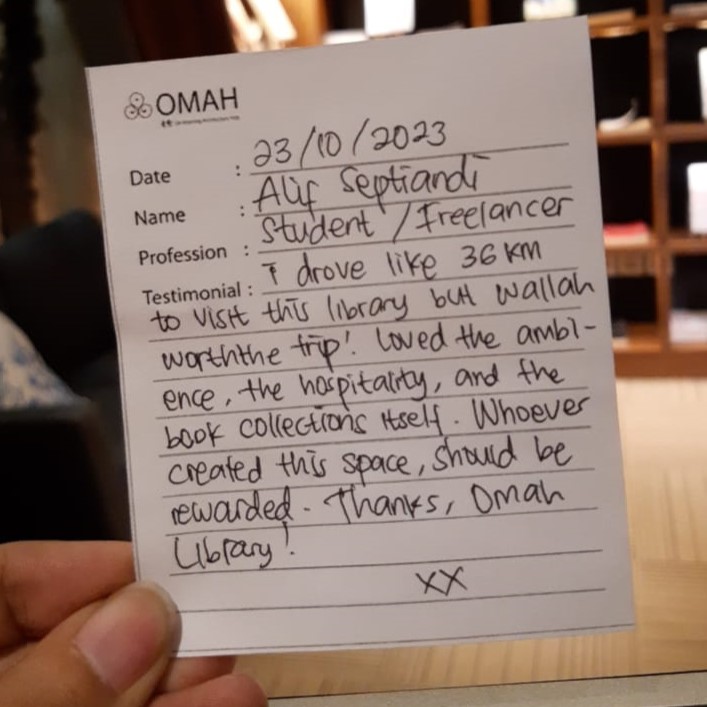 OMAH
Date : 23/10/2023
Name : Alif Septiandi
Profession : Student / Freelancer
Testimonial : I drove like 36 km
to visit this library but wallah
worththe trip! Loved the ambi-
ence, the hospitality, and the
book collections itself. Whoever
created this space, should be
rewarded. Thanks, Omah
Library!
xx